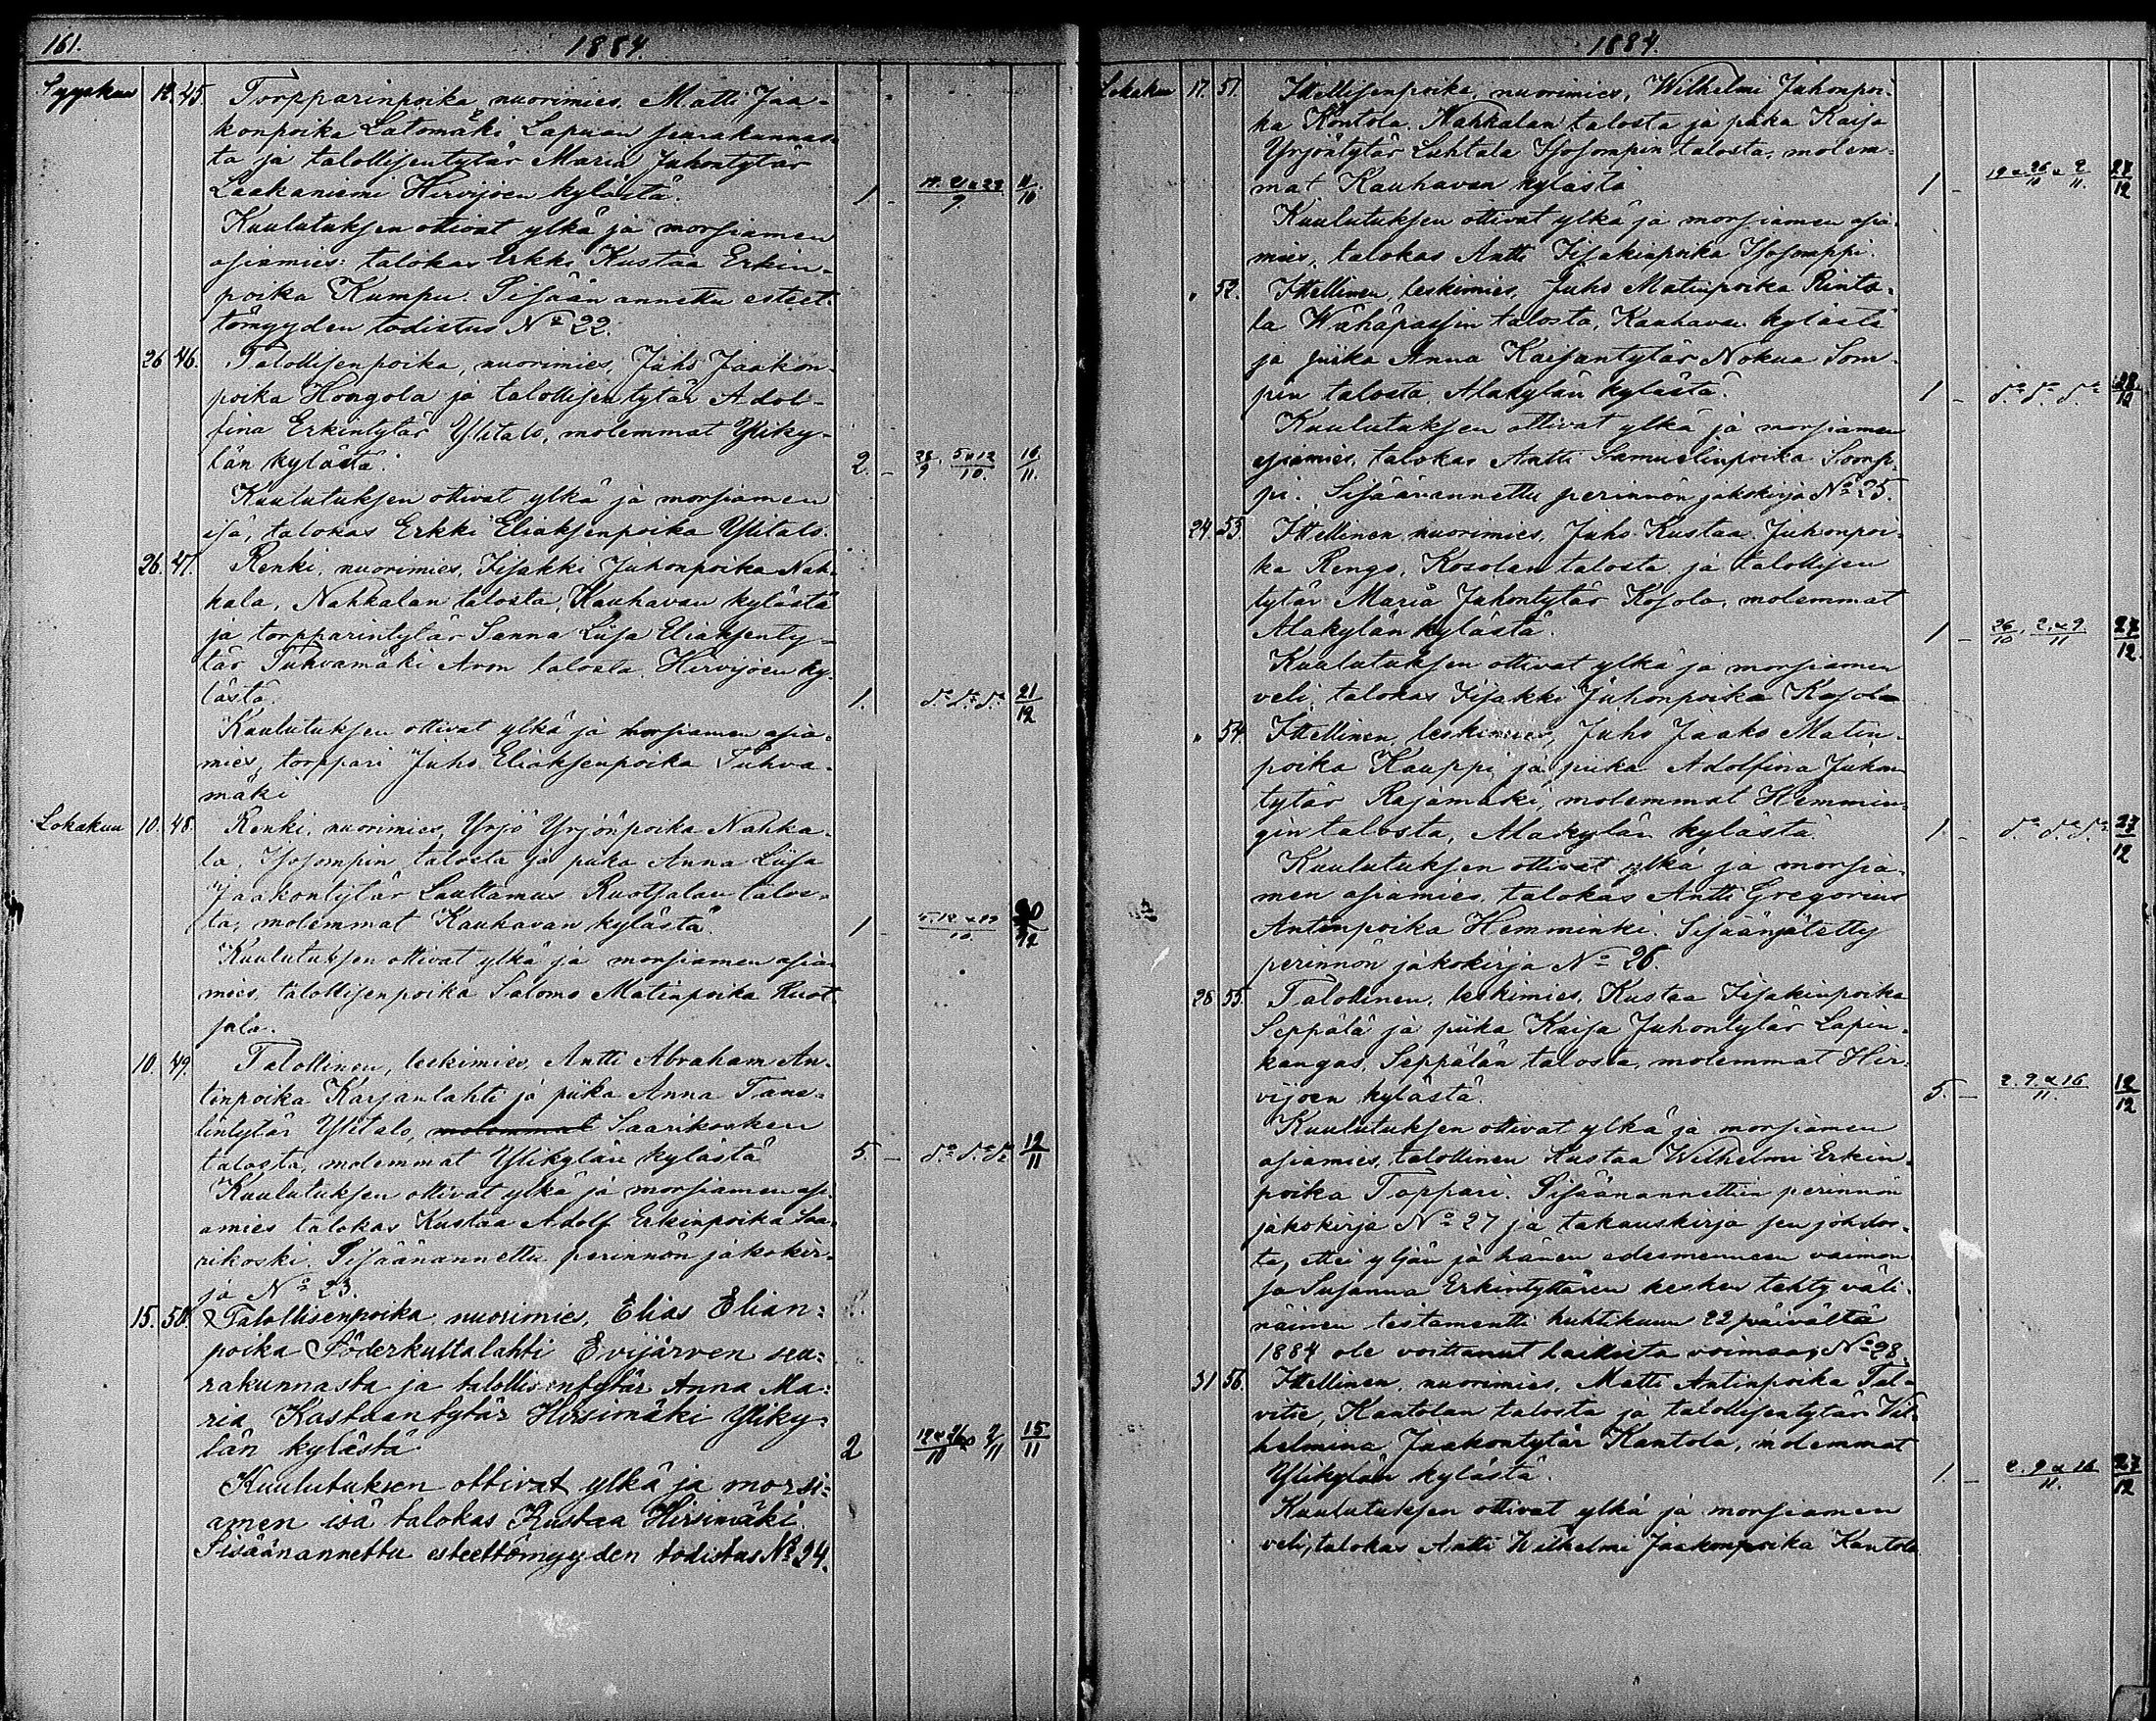 161. 1884.
Syyskuu 12. 45. Torpparinpoika, nuorimies, Matti Jaa-
konpoika Latomäki Lapuan seurakunnas-
ta ja talollisentytär Maria Juhontytär
Laakaniemi Hirvijoen kylästä. 1 - 14. 21 & 28/9. 11/10
Kuulutuksen ottivat ylkä ja morsiamen
asiamies: talokas Erkki Kustaa Erkin-
poika Kumpu. Sisään annettu esteet-
tömyyden todistus No 22.
26 46. Talollisenpoika, nuorimies, Juho Jaakon-
poika Hongola ja talollisentytär Adol-
fina Erkintytär Ylitalo, molemmat Yliky-
län kylästä. 2. - 28/9, 5 & 12/10. 10/11.
Kuulutuksen ottivat ylkä ja morsiamen
isä, talokas Erkki Eliaksenpoika Ylitalo.
26. 47. Renki, nuorimies, Iisakki Juhonpoika Nah-
kala, Nahkalan talosta, Kauhavan kylästä
ja torpparintytär Sanna Liisa Eliaksenty-
tär Tuhvamäki Aron talosta, Hirvijoen ky-
lästä. 1. do do do 21/12
Kuulutuksen ottivat ylkä ja morsiamen asia-
mies, torppari Juho Eliaksenpoika Tuhva-
mäki
Lokakuu 10. 48. Renki, nuorimies, Yrjö Yrjönpoika Nahka-
la, Isosompin talosta ja piika Anna Liisa
Jaakontytär Lauttamus Ruotsalan talos-
ta, molemmat Kauhavan kylästä. 1 - 5. 12 & 19/10.
Kuulutuksen ottivat ylkä ja morsiamen asia-
mies, talollisenpoika Salomo Matinpoika Ruot-
sala.
10. 49. Talollinen, leskimies, Antti Abraham An-
tinpoika Karjanlahti ja piika Anna
Ylitalo, molemmat Saarikosken
talosta, molemmat Ylikylän kylästä 5. - do do do 12/11
Kuulutuksen ottivat ylkä ja morsiamen asi-
amies talokas Kustaa Adolf Erkinpoika Saa-
rikoski. Sisäänannettu perinnön jakokir-
ja No 23.
15. 50. Talollisenpoika, nuorimies, Elias Elian-
poika Söderkultalahti Evijärven seu-
rakunnasta ja talollisentytär Anna Ma-
ria Kustaantytär Hirsimäki Yliky-
län kylästä 2 19 & 26/10 & 2/11 15/11
Kuulutuksen ottivat ylkä ja morsi-
amen isä talokas Kustaa Hirsimäki.
Sisäänannettu esteettömyyden todistus No 24.
1884.
Lokakuu 17. 51. Itsellisenpoika, nuorimies, Wilhelmi Juhonpoi-
ka Kontola, Nahkalan talosta ja piika Kaisa
Yrjöntytär Luhtala Isosompin talosta, molem-
mat Kauhavan kylästä 1 - 19 & 26/10 & 2/11. 27/12
Kuulutuksen ottivat ylkä ja morsiamen asia-
mies, talokas Antti Iisakinpoika Isosomppi.
" 52. Itsellinen, leskimies, Juho Matinpoika Rinta-
la Wähäpassin talosta, Kauhavan kylästä
ja piika Anna Kaisantytär Nokua Som-
pin talosta, Alakylän kylästä. 1 - do do do 28/12
Kuulutuksen ottivat ylkä ja morsiamen
asiamies, talokas Antti Samuelinpoika Somp-
pi. Sisäänannettu perinnön jakokirja No 25.
24. 53. Itsellinen, nuorimies, Juho Kustaa Juhonpoi-
ka Rengo, Kosolan talosta ja talollisen
tytär Maria Juhontytär Kosola, molemmat
Alakylän kylästä. 1 - 26/10, 2 & 9/11 27/12.
Kuulutuksen ottivat ylkä ja morsiamen
veli, talokas Iisakki Juhonpoika Kosola
" 54. Itsellinen, leskimies, Juho Jaako Matin-
poika Kauppi ja piika Adolfina Juhon-
tytär Rajamäki, molemmat Hemmin-
gin talosta, Alakylän kylästä. 1. - do do do 27/12
Kuulutuksen ottivat ylkä ja morsia-
men asiamies, talokas Antti Gregorius
Antinpoika Hemminki. Sisäänjätetty
perinnön jakokirja No 26.
28 55. Talollinen, leskimies, Kustaa Iisakinpoika
Seppälä ja piika Kaisa Juhontytär Lapin-
kangas, Seppälän talosta, molemmat Hir-
vijoen kylästä. 5. - 2. 9. & 16/11. 12/12
Kuulutuksen ottivat ylkä ja morsiamen
asiamies, talollinen Kustaa Wilhelmi Erkin-
poika Toppari. Sisäänannettiin perinnön
jakokirja No 27 ja takauskirja sen johdos-
ta, ettei yljän ja hänen edesmenneen vaimon-
sa Susanna Erkintyttären kesken tehty väli-
näinen testamentti huhtikuun 22 päivältä
1884 ole voittanut laillista voimaa, No 28.
31 56. Itsellinen, nuorimies, Matti Antinpoika Tal-
vitie, Kantolan talosta ja talollisentytär Wil-
helmina Jaakontytär Kantola, molemmat
Ylikylän kylästä. 1. - 2. 9 & 16/11. 27/12
Kuulutuksen ottivat ylkä ja morsiamen
veli, talokas Antti Wilhelmi Jaakonpoika Kantola